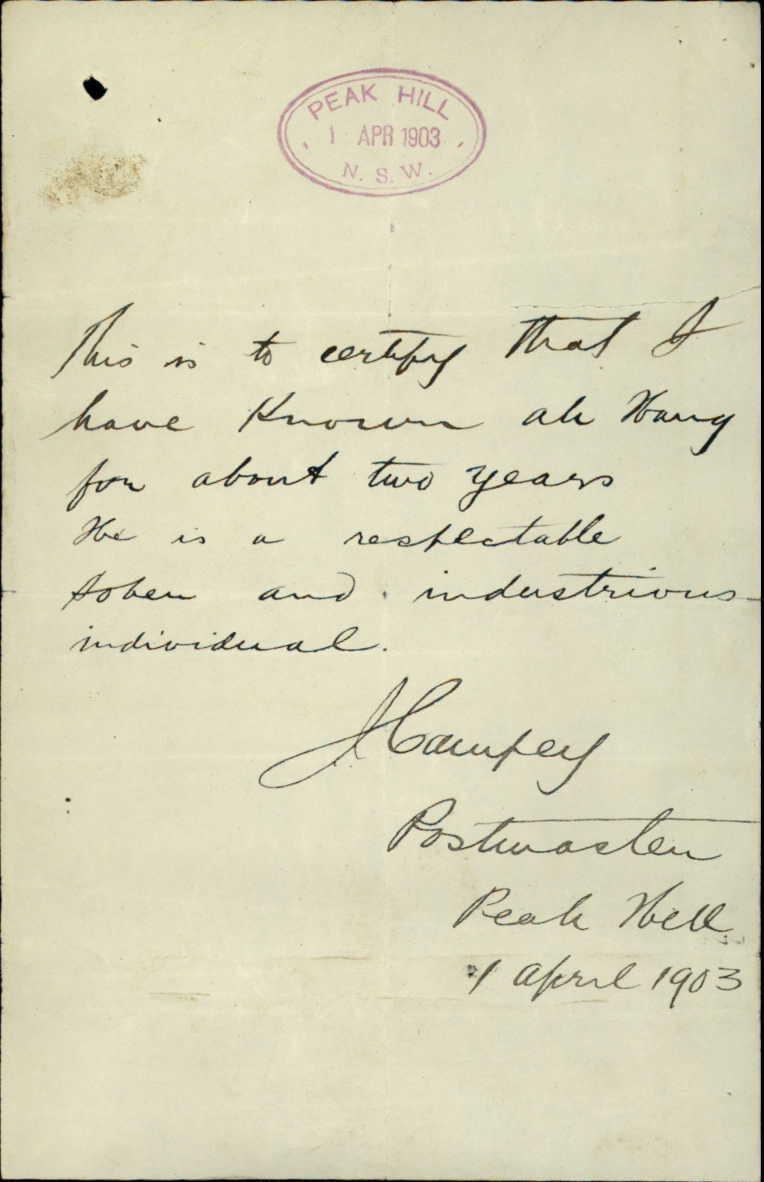 PEAK HILL
1 APR 1903
N.S.W.
This is to certify that I
have Known ah Hang
for about two years
He is a respectable
sober and industrious
individual.
J Campey
Postmaster
Peak Hill
1 April 1903